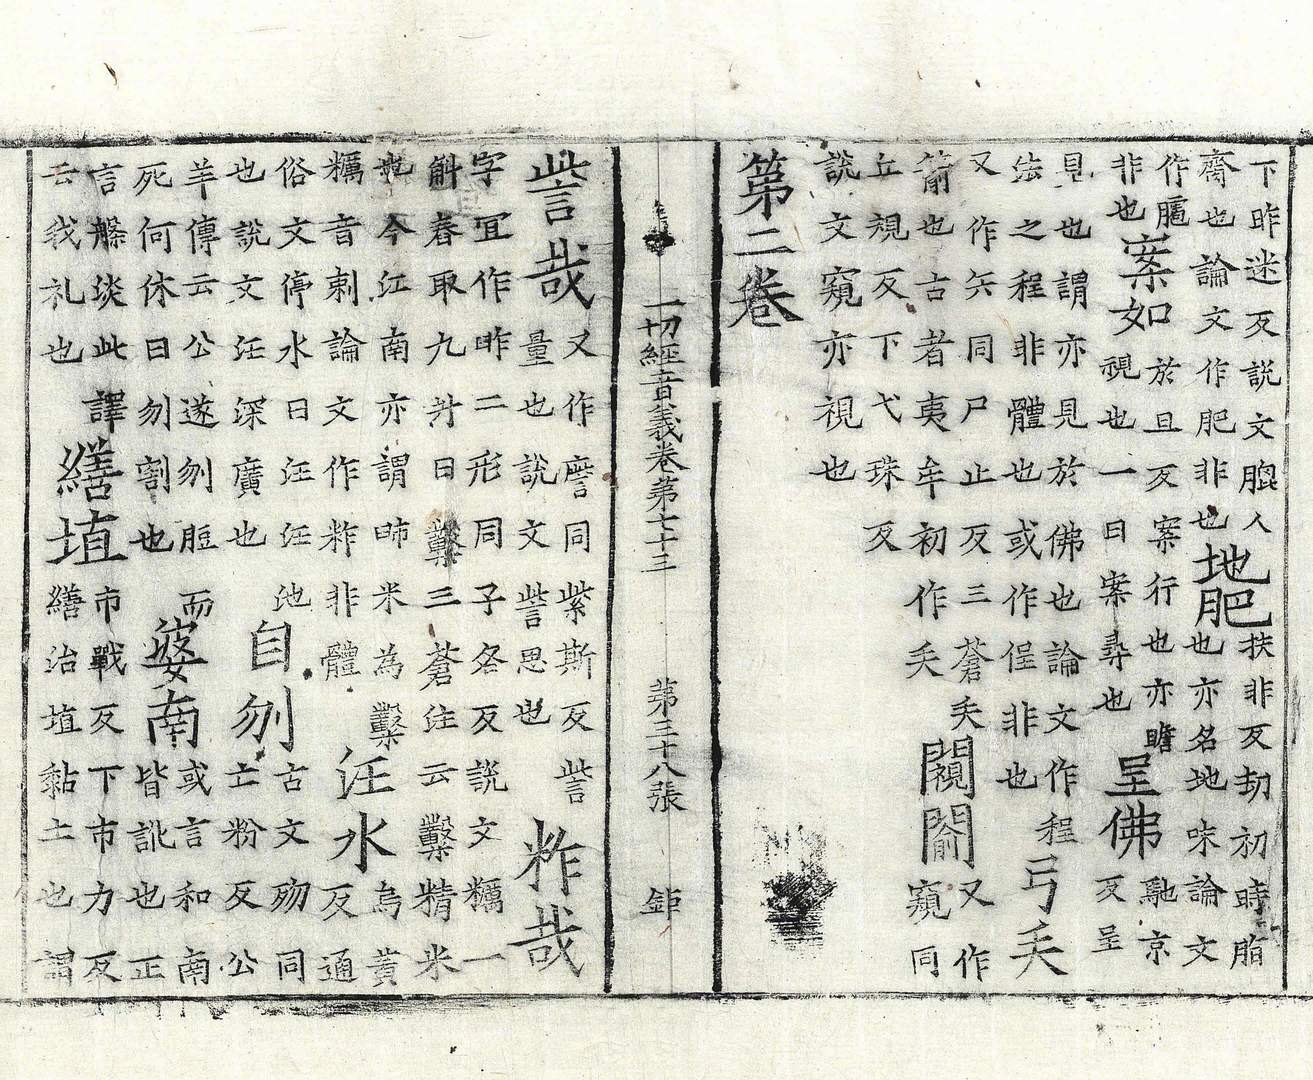 下昨迷反說文𦜝人
齊也論文作肥非也
地肥
扶非反劫初時脂
也亦名地味論文
作𦢊
非也
案如
於旦反案行也亦瞻
視也一曰案尋也
呈佛
馳京
反呈
見也謂亦見於佛也論文作程
法之程非體也或作侱非也
弓矢
又作矢同尸止反三蒼矢
箭也古者夷牟初作矢
闚𨵦
又作
窺同
丘規反下弋珠反
說文窺亦視也
第二卷
一切經音義卷第七十三 第三十八張 鉅
訾哉
又作䜆同紫斯反訾
量也說文訾思也
柞哉
字宜作昨二形同子各反說文糲一
斛舂取九㪷曰糳三蒼注云糳精米
也今江南亦謂師米為糳
糲音剌論文作柞非體
汪水
烏黃
反通
俗文停水曰汪汪池
也說文汪深廣也
自刎
古文歾同
亡粉反公
羊傳云公遂刎脰而
死何休曰刎割也
婆南
或言和南
皆訛也正
言槃淡此譯
云我礼也
繕埴
市戰反下市力反
繕治埴黏土也謂